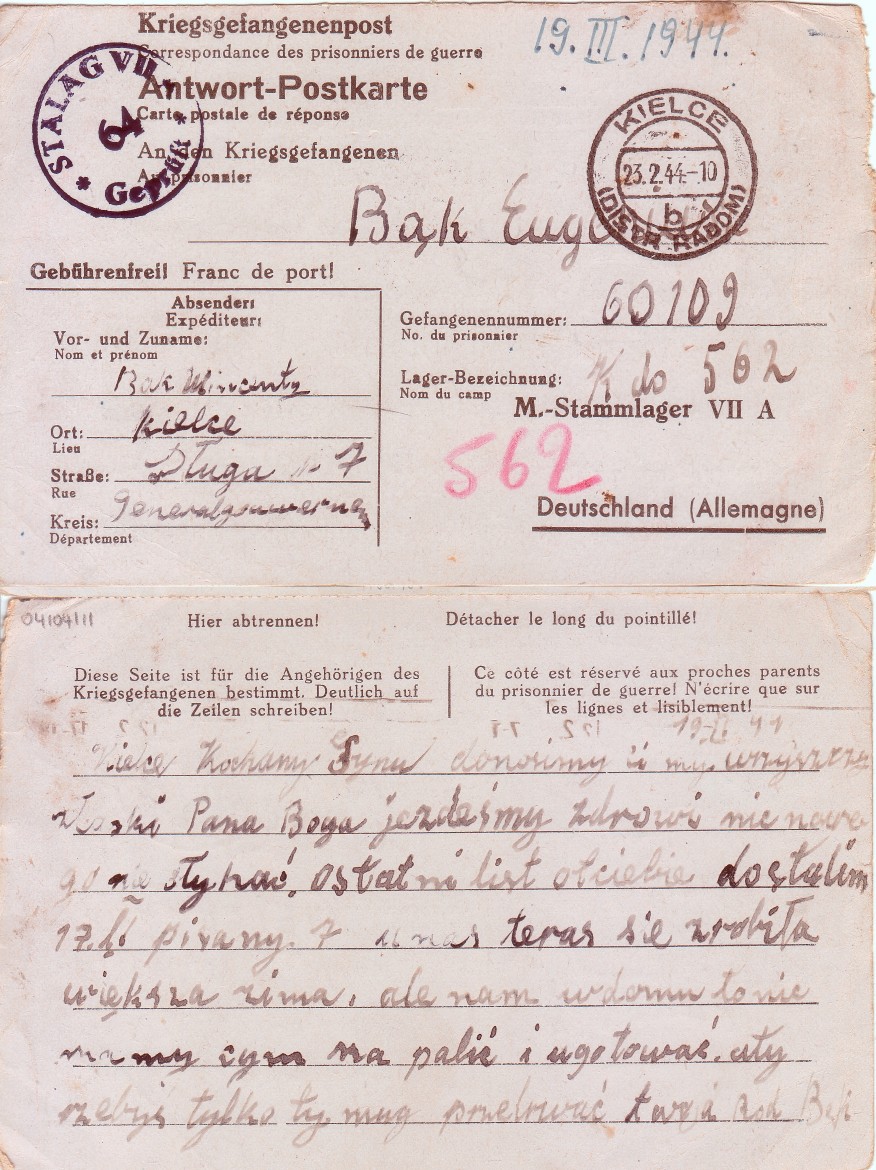 Kriegsgefangenenpost
Correspondance des prisonniers de guerre
19. III. 1944.
STALAG VII A
64
Geprüft
Antwort-Postkarte
Carte postale de réponse
An den Kriegsgefangenen
Au prisonnier
KIELCE
23.2.44.-10
b
(DISTR. RADOM)
Bąk
Gebührenfrei! Franc de port!
Absender:
Expéditeur:
Vor- und Zuname:
Nom et prénom
Bąk Wincenty
Ort: Kielce
Lieu
Straße: Długa 7
Rue
Kreis:
Département
Gefangenennummer: 60109
No. du prisonnier
Lager-Bezeichnung: Kdo 562
Nom du camp
M.-Stammlager VII A
562
Deutschland (Allemagne)
04104111
Hier abtrennen!
Détacher le long du pointillé!
Diese Seite ist für die Angehörigen des
Kriegsgefangenen bestimmt. Deutlich auf
die Zeilen schreiben!
Ce côté est réservé aux proches parents
du prisonnier de guerre! N'écrire que sur
les lignes et lisiblement!
Kielce Kochany Synu donosimy ii my wszyscy z
Pana Boga jezdeśmy zdrowi nic nowe
go na słyhać. ostatni list otciebie dostalim
17.II pisany 7 u nas teras sie zrobiła
większa zima. ale nam wdomu to nic
mamy cym na palić i ugotować. aty
zebyś tylko ty mug przetrwać